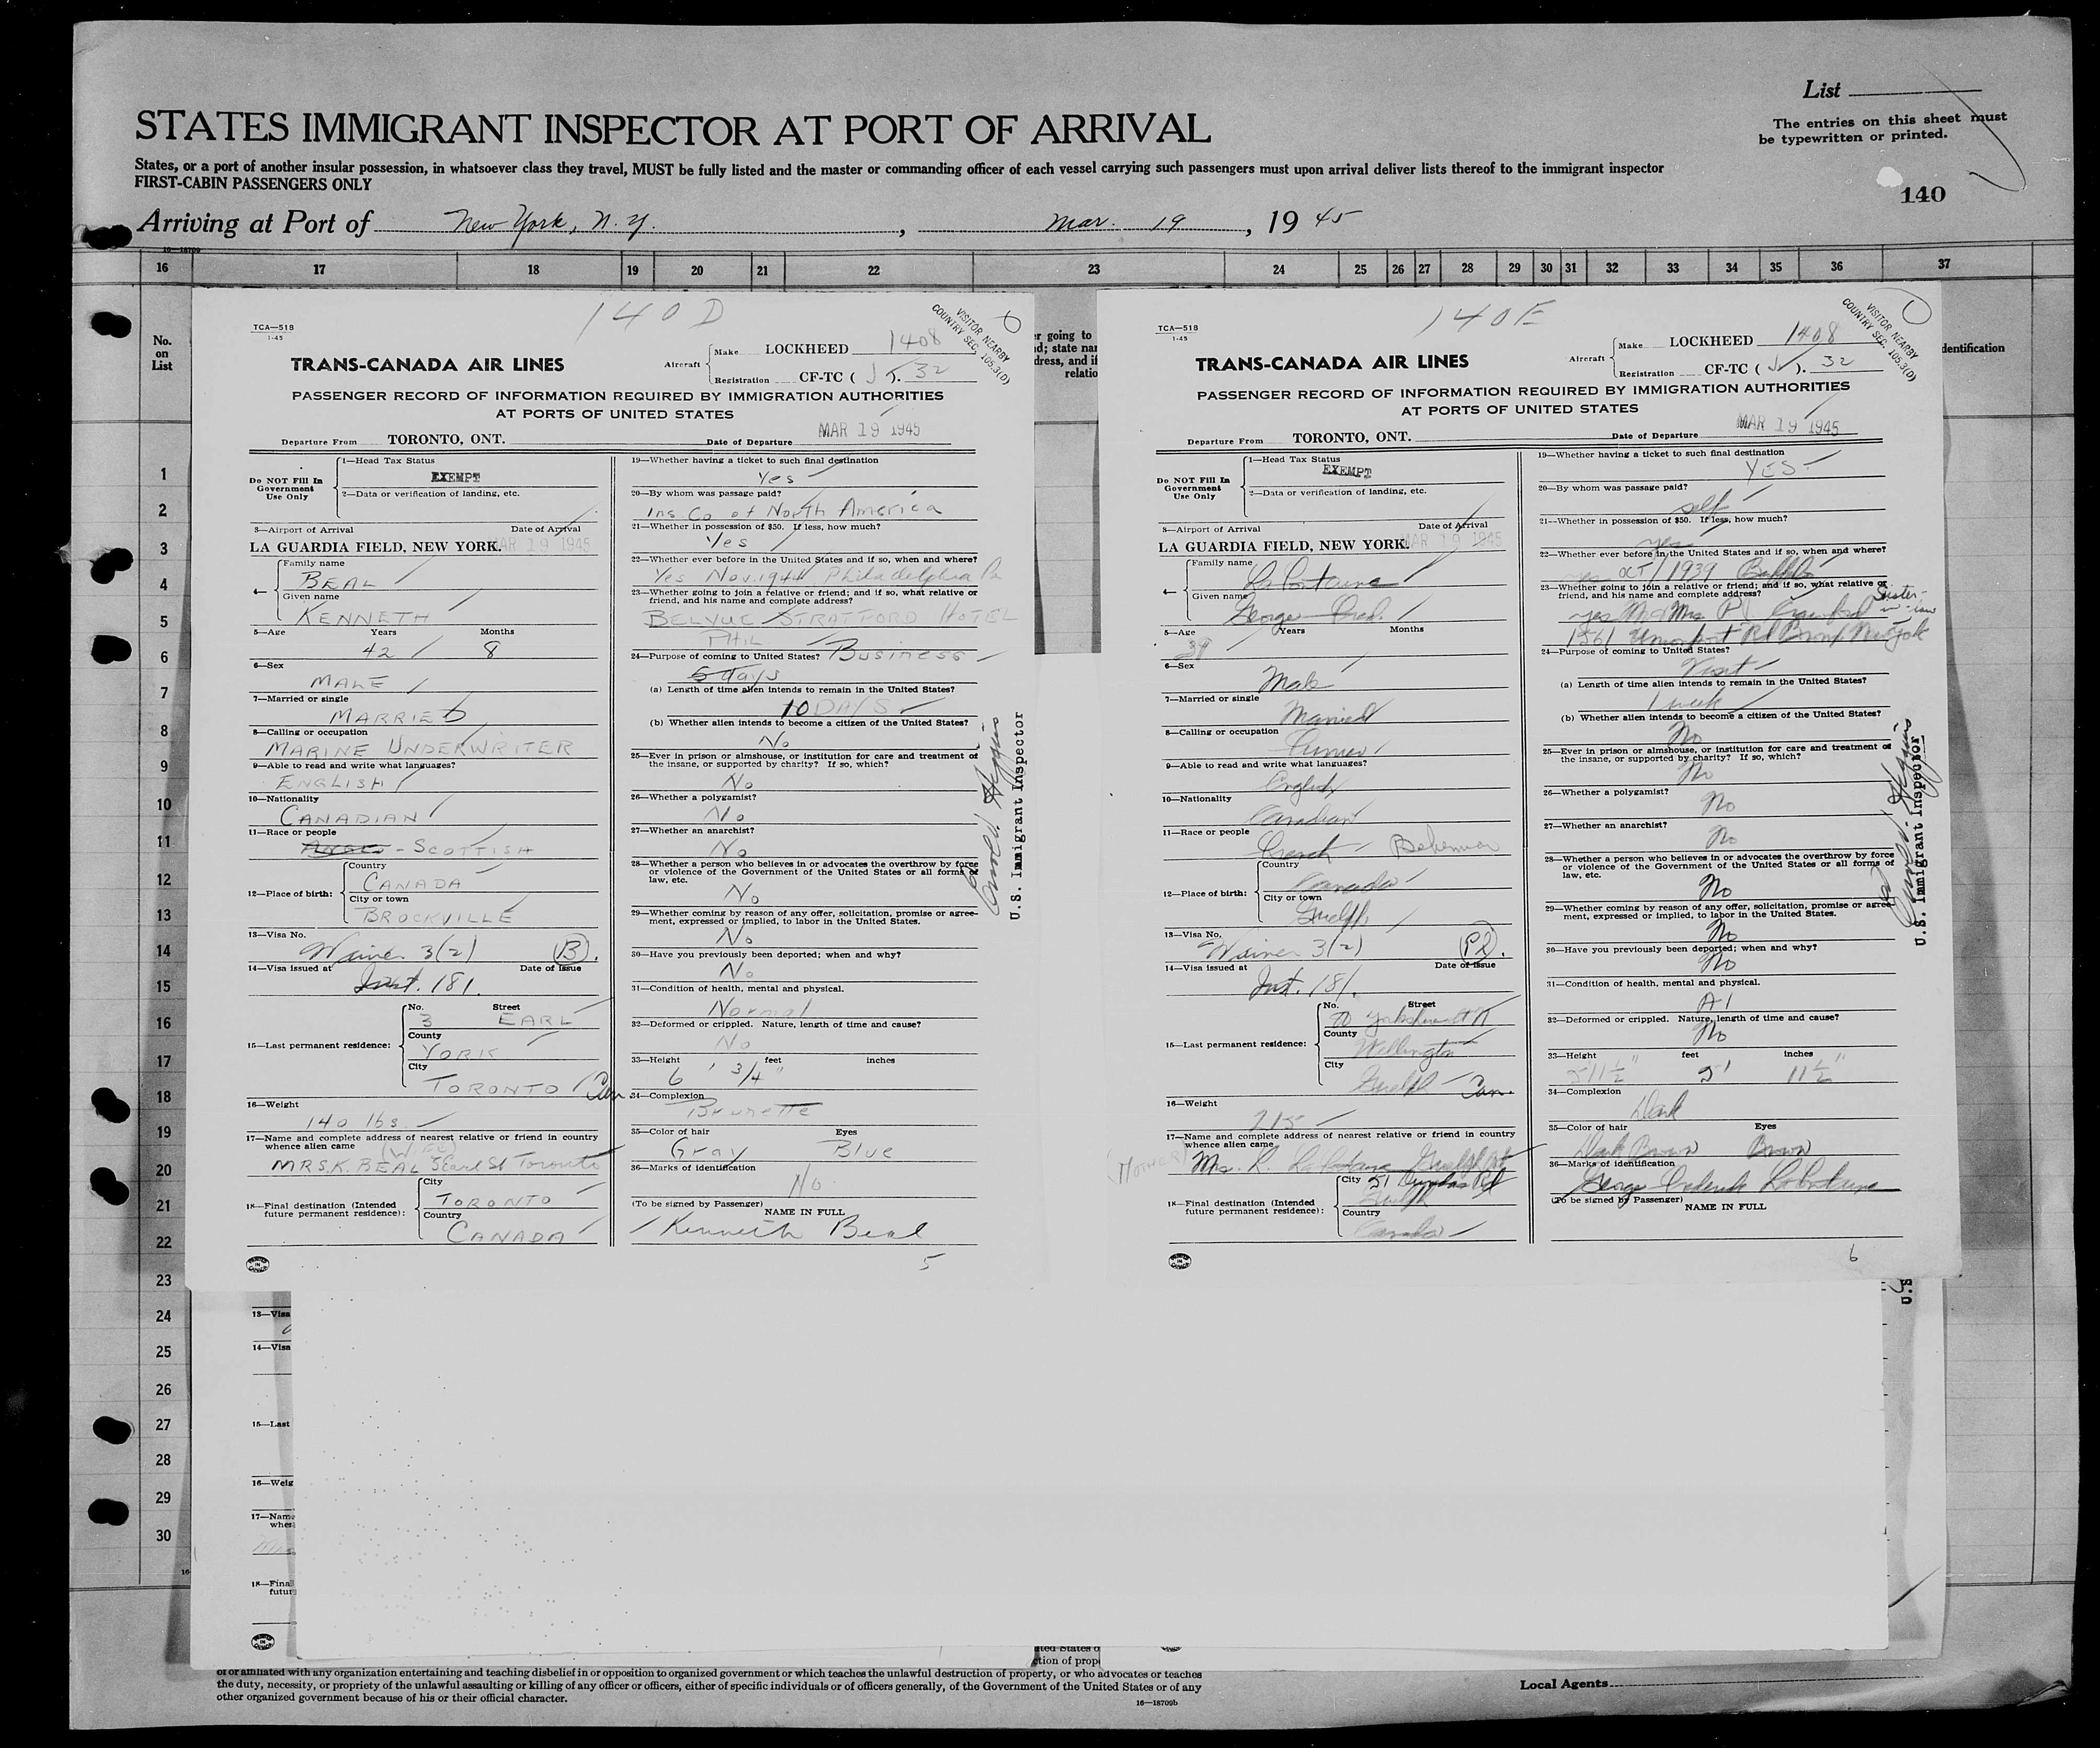 List
STATES IMMIGRANT INSPECTOR AT PORT OF ARRIVAL
The entries on this sheet must
be typewritten or printed.
States, or a port of another insular possession, in whatsoever class they travel, MUST be fully listed and the master or commanding officer of each vessel carrying such passengers must upon arrival deliver lists thereof to the immigrant inspector
FIRST-CABIN PASSENGERS ONLY
140
Arriving at Port of New York, N. Y., Mar. 19, 1945
16—18709
16 17 18 19 20 21 22 23 24 25 26 27 28 29 30 31 32 33 34 35 36 37
No.
on
List
er going to
dress, and if
relatio
dentification
1
2
3
4
5
6
7
8
9
10
11
12
13
14
15
16
17
18
19
20
21
22
23
24
25
26
27
28
29
30
140 D
VISITOR NEARBY
COUNTRY SEC. 105.3(D)
TCA—518
1-45
TRANS-CANADA AIR LINES
Aircraft
Make LOCKHEED 1408
Registration CF-TC ( ). 32
PASSENGER RECORD OF INFORMATION REQUIRED BY IMMIGRATION AUTHORITIES
AT PORTS OF UNITED STATES
Departure From TORONTO, ONT. Date of Departure MAR 19 1945
Do NOT Fill In
Government
Use Only
1—Head Tax Status
EXEMPT
2—Data or verification of landing, etc.
3—Airport of Arrival Date of Arrival
LA GUARDIA FIELD, NEW YORK. MAR 19 1945
4—
Family name
BEAL
Given name
KENNETH
5—Age Years Months
42 8
6—Sex
MALE
7—Married or single
MARRIED
8—Calling or occupation
MARINE UNDERWRITER
9—Able to read and write what languages?
ENGLISH
10—Nationality
CANADIAN
11—Race or people
- SCOTTISH
12—Place of birth:
Country
CANADA
City or town
BROCKVILLE
13—Visa No.
Waiver 3(2) B.
14—Visa issued at Date of Issue
Inst. 181.
15—Last permanent residence:
No. Street
3 EARL
County
YORK
City
TORONTO Can.
16—Weight
140 lbs.
17—Name and complete address of nearest relative or friend in country
whence alien came (WIFE)
MRS. K. BEAL 3 Earl St Toronto
18—Final destination (Intended
future permanent residence):
City
TORONTO
Country
CANADA
19—Whether having a ticket to such final destination
Yes
20—By whom was passage paid?
Ins Co of North America
21—Whether in possession of $50. If less, how much?
Yes
22—Whether ever before in the United States and if so, when and where?
Yes Nov. 1944 Philadelphia Pa
23—Whether going to join a relative or friend; and if so, what relative or
friend, and his name and complete address?
BELVUE STRATFORD HOTEL
PHIL
24—Purpose of coming to United States? Business
days
(a) Length of time alien intends to remain in the United States?
10 DAYS
(b) Whether alien intends to become a citizen of the United States?
No
25—Ever in prison or almshouse, or institution for care and treatment of
the insane, or supported by charity? If so, which?
No
26—Whether a polygamist?
No
27—Whether an anarchist?
No
28—Whether a person who believes in or advocates the overthrow by force
or violence of the Government of the United States or all forms of
law, etc.
No
29—Whether coming by reason of any offer, solicitation, promise or agree-
ment, expressed or implied, to labor in the United States.
No
30—Have you previously been deported; when and why?
No
31—Condition of health, mental and physical.
Normal
32—Deformed or crippled. Nature, length of time and cause?
No
33—Height feet inches
6 ' 3/4 "
34—Complexion
Brunette
35—Color of hair Eyes
Gray Blue
36—Marks of identification
No
(To be signed by Passenger)
NAME IN FULL
Kenneth Beal
5
U.S. Immigrant Inspector
140 E
VISITOR NEARBY
COUNTRY SEC. 105.3(D)
TCA—518
1-45
TRANS-CANADA AIR LINES
Aircraft
Make LOCKHEED 1408
Registration CF-TC ( ). 32
PASSENGER RECORD OF INFORMATION REQUIRED BY IMMIGRATION AUTHORITIES
AT PORTS OF UNITED STATES
Departure From TORONTO, ONT. Date of Departure MAR 19 1945
Do NOT Fill In
Government
Use Only
1—Head Tax Status
EXEMPT
2—Data or verification of landing, etc.
3—Airport of Arrival Date of Arrival
LA GUARDIA FIELD, NEW YORK. MAR 19 1945
4—
Family name
LaFontaine
Given name
George Fred.
5—Age Years Months
39
6—Sex
Male
7—Married or single
Married
8—Calling or occupation
9—Able to read and write what languages?
English
10—Nationality
Canadian
11—Race or people
French Bohemian
12—Place of birth:
Country
Canada
City or town
Guelph
13—Visa No.
Waiver 3(2) Pl.
14—Visa issued at Date of Issue
Inst. 181.
15—Last permanent residence:
No. Street
County
Wellington
City
Guelph Can.
16—Weight
215
17—Name and complete address of nearest relative or friend in country
whence alien came
(Mother) Mrs. LaFontaine Guelph Ont
18—Final destination (Intended
future permanent residence):
City 51 Dundas Rd
Guelph
Country
Canada
19—Whether having a ticket to such final destination
YES
20—By whom was passage paid?
self
21—Whether in possession of $50. If less, how much?
yes
22—Whether ever before in the United States and if so, when and where?
yes OCT 1939 Buffalo
23—Whether going to join a relative or friend; and if so, what relative or
friend, and his name and complete address? Sister-in-law
yes Mr & Mrs P Crawford
1561 Unionport Rd Bronx New York
24—Purpose of coming to United States?
Visit
(a) Length of time alien intends to remain in the United States?
1 week
(b) Whether alien intends to become a citizen of the United States?
No
25—Ever in prison or almshouse, or institution for care and treatment of
the insane, or supported by charity? If so, which?
No
26—Whether a polygamist?
No
27—Whether an anarchist?
No
28—Whether a person who believes in or advocates the overthrow by force
or violence of the Government of the United States or all forms of
law, etc.
No
29—Whether coming by reason of any offer, solicitation, promise or agree-
ment, expressed or implied, to labor in the United States.
No
30—Have you previously been deported; when and why?
No
31—Condition of health, mental and physical.
A1
32—Deformed or crippled. Nature, length of time and cause?
No
33—Height feet inches
5 11 1/2 " 5' 11 1/2 "
34—Complexion
Dark
35—Color of hair Eyes
Dark Brown Brown
36—Marks of identification
George Frederick LaFontaine
(To be signed by Passenger)
NAME IN FULL
6
U.S. Immigrant Inspector
13—Visa
14—Visa
15—Last
16—Weig
17—Name
when
18—Final
futur
U.S.
ction of prop
of or affiliated with any organization entertaining and teaching disbelief in or opposition to organized government or which teaches the unlawful destruction of property, or who advocates or teaches
the duty, necessity, or propriety of the unlawful assaulting or killing of any officer or officers, either of specific individuals or of officers generally, of the Government of the United States or of any
other organized government because of his or their official character.
16—18709b
Local Agents